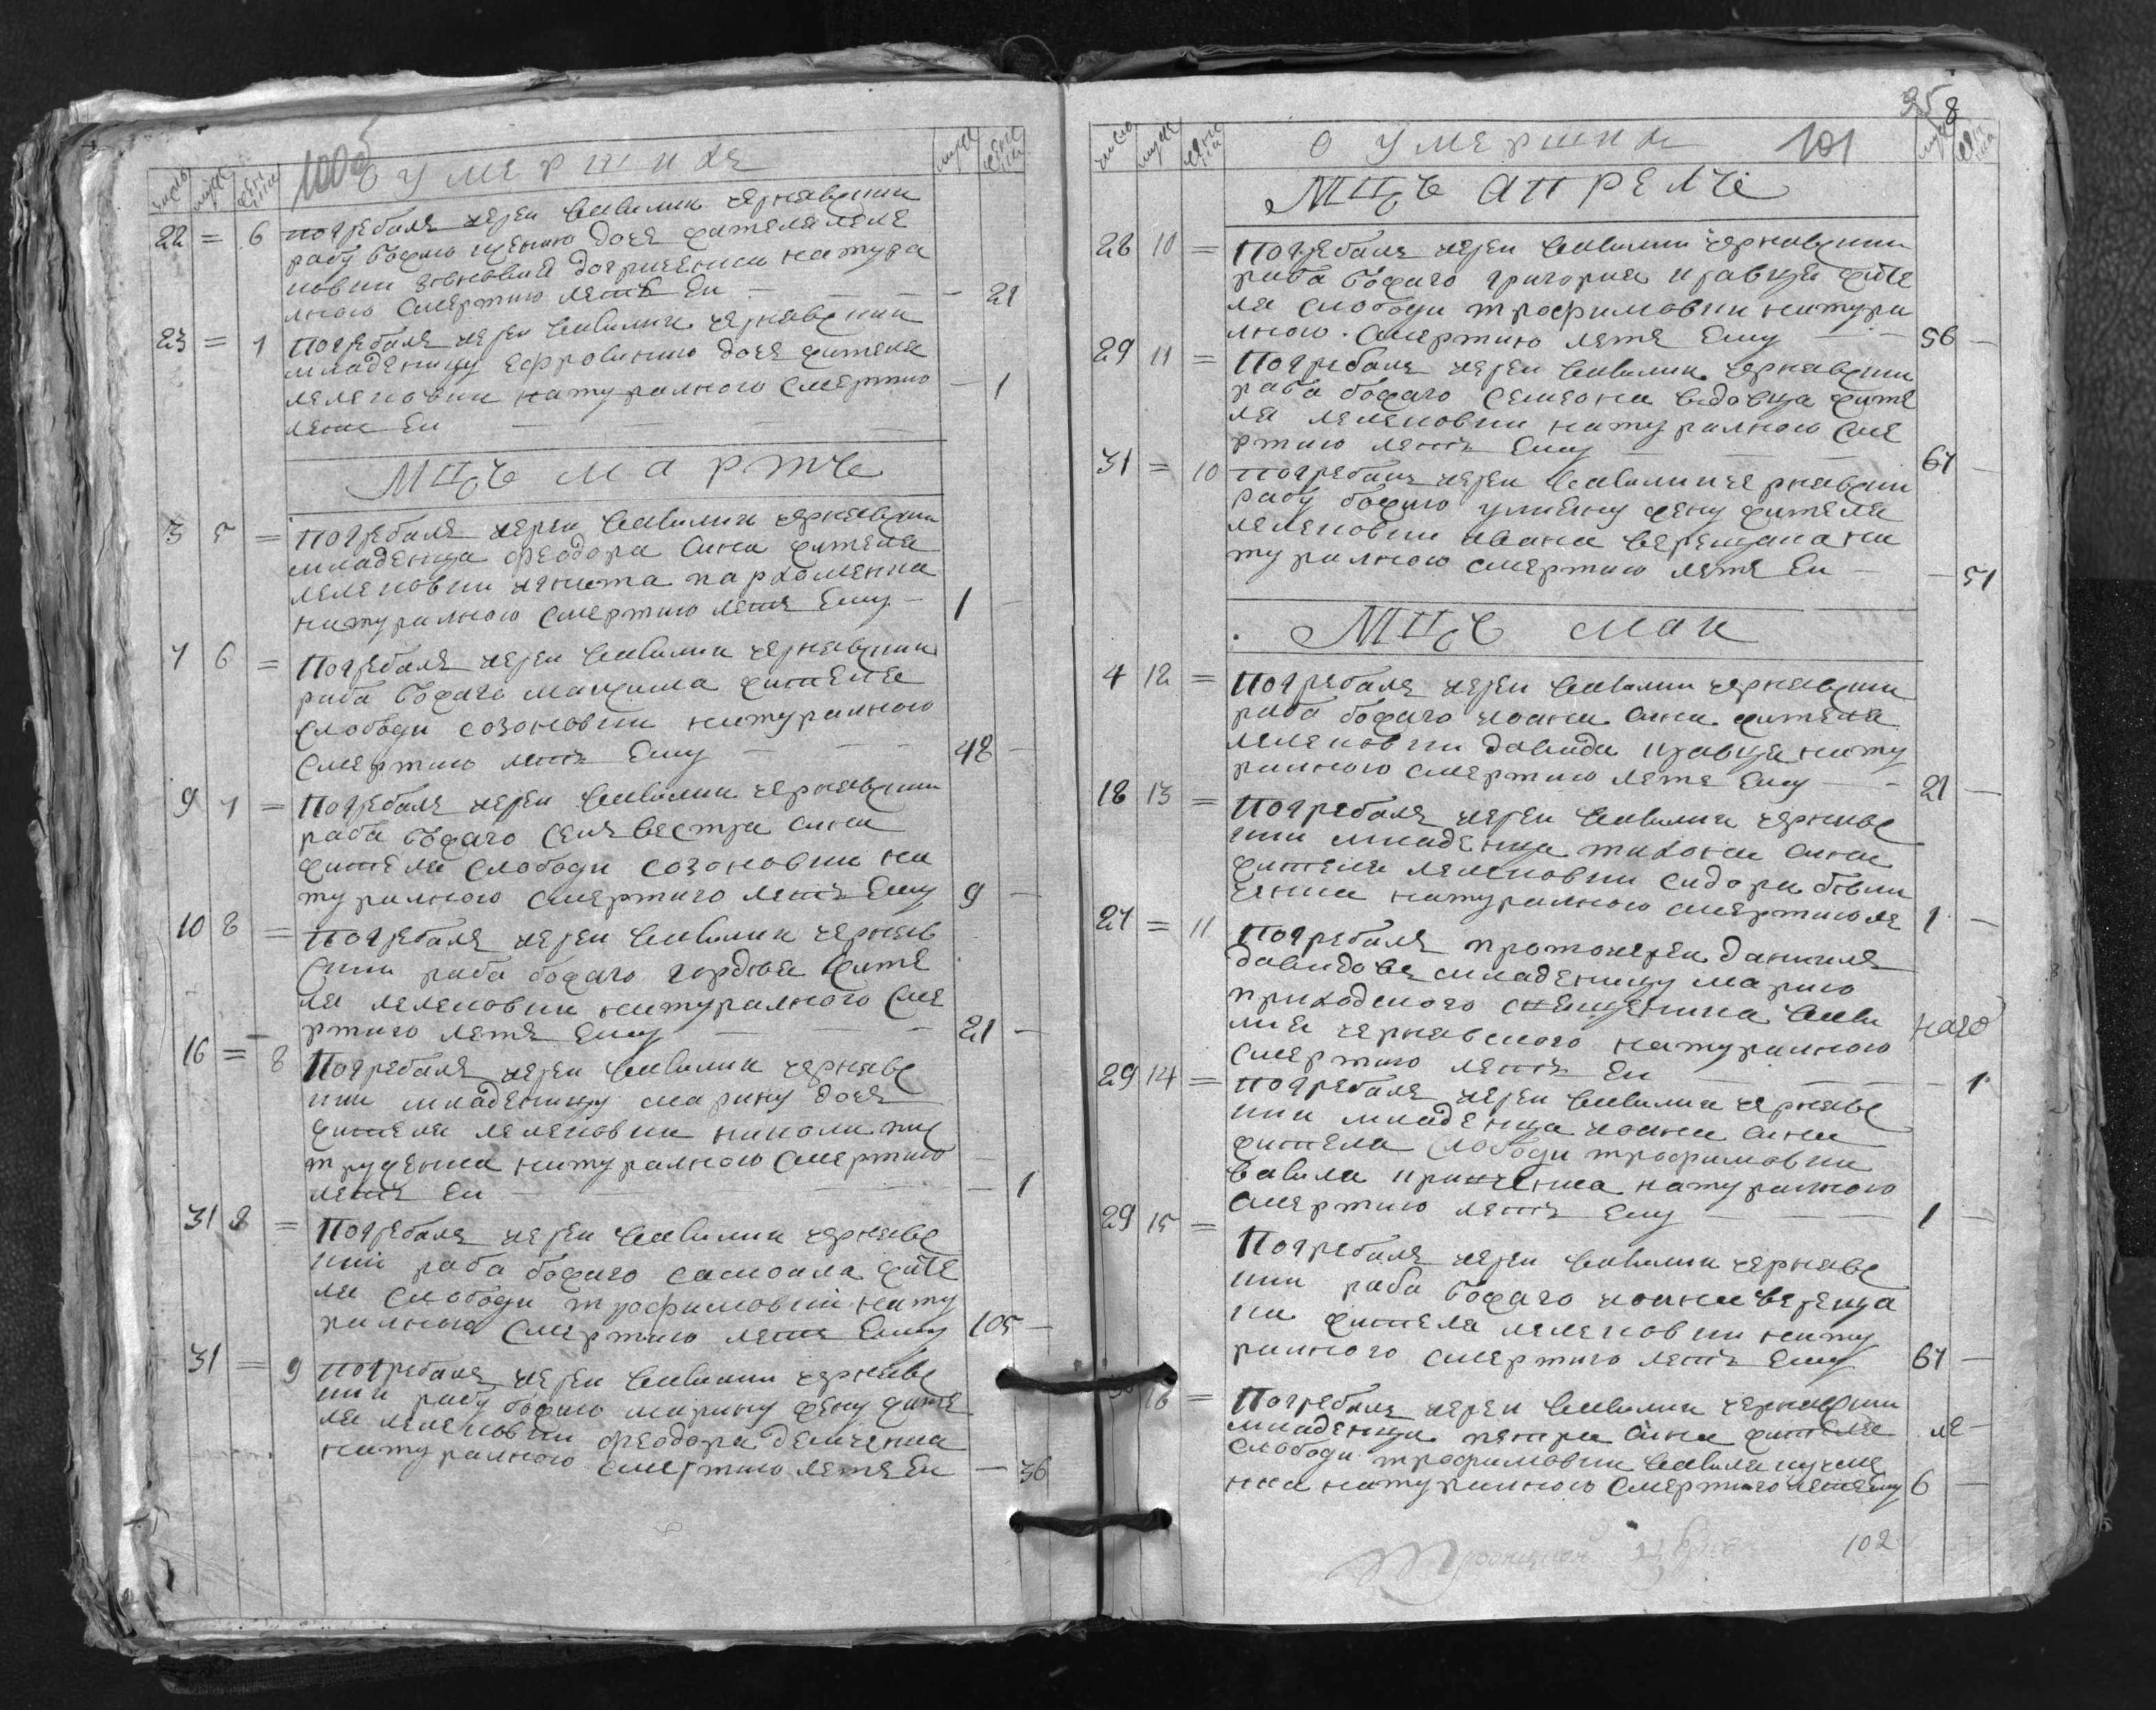 100об
О УМЕРШИХЪ
число муж женъ муж жен
22 = 6 погребалъ иерей Вавилии Чернявски
рабу божию дочъ жителя леле
ковки натура
лною смертию летъ Ей — 21
23 = 7 Погребалъ иерей Вавилии Чернявскии
младеницу Ефросинию дочъ жителя
лелековки натуралною смертию — 1
летъ Ей
Мцъ мартъ
3 5 = Погребалъ иерей Вавилии Чернявскии
младенца феодора сина жителя
лелековки игната пархоменка
натуралною смертию летъ Ему — 1 —
7 6 = Погребалъ иерей Вавилии Чернявскии
раба божаго максима жителя
слободи созоновки натуралною
смертию летъ Ему — 48 —
9 7 = Погребалъ иерей Вавилии Чернявскии
раба божаго селвестра сина
жителя слободи созоновки на
туралною смертию летъ Ему 9 —
10 8 = Погребалъ иерей Вавилии Черняв
скии раба божаго гордея жите
ля лелековки натуралною сме
ртию летъ Ему — 21 —
16 = 8 Погребалъ иерей Вавилии Чернявс
кии младеницу марину дочъ
жителя лелековки николи
натуралною смертию
летъ Ей — 1
31 9 = Погребалъ иерей Вавилии Чернявс
кии раба божаго самоила жите
ля слободи трофимовки нату
ралною смертию летъ Ему 105 —
31 = 9 погребалъ иерей Вавилии Чернявс
кии рабу божию марину жену жите
ля лелековки феодора демченка
натуралною смертию летъ Ей — 36
358
число муж женъ муж жен
О УМЕРШИХ 101
Мцъ апрелъ
28 10 = Погребалъ иерей Вавилии Чернявскии
раба божаго григория кравця жите
ля слободи трофимовки натура
лною смертию летъ Ему — 56 —
29 11 = Погребалъ иерей Вавилии Чернявскии
раба божаго семеона вдовца жите
ля лелековки натуралною сме
ртию летъ Ему — 67 —
31 = 10 погребалъ иерей Вавилии Чернявскии
рабу божию улияну жену жителя
лелековки ивана верещака на
туралною смертию летъ Ей — 51
Мцъ маи
4 12 = Погребалъ иерей Вавилии Чернявскии
раба божаго иоана сина жителя
лелековки давида кравця нату
ралною смертию летъ Ему — 21 —
18 13 = Погребалъ иерей Вавилии Чернявс
кии младенца тихона сина
жителя лелековки сидора
натуралною смертию ле 1 —
27 = 11 Погребалъ протоиерей даниилъ
давидовъ младеницу марию
приходского священика Вави
лия Чернявского натуралною
смертию летъ Ей — 1
29 14 = погребалъ иерей Вавилии Чернявс
кии младенца иоана сина
жителя слободи трофимовки
вавила натуралною
смертию летъ Ему — 1 —
29 15 = Погребалъ иерей Вавилии Чернявс
кии раба божаго иоана Вереща
ка жителя лелековки нату
ралною смертию летъ Ему 67 —
16 = Погребалъ иерей Вавилии Чернявскии
младенца петра сина жителя
слободи трофимовки Вавила
натуралною смертию летъ Ему 6 —
102